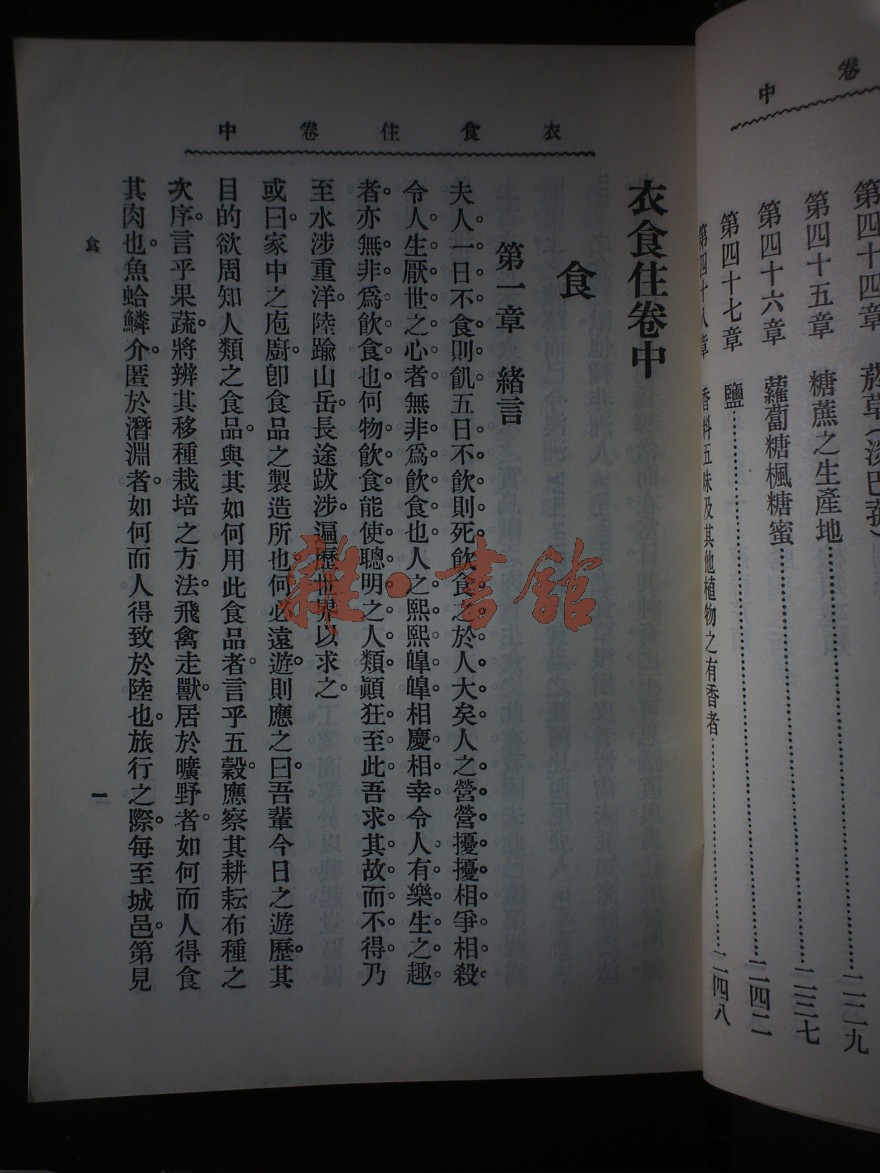 卷中
第四十四章　菸草(淡巴菰)……二二九
第四十五章　糖蔗之生產地……二三七
第四十六章　蘿蔔糖楓糖蜜……二四二
第四十七章　鹽……二四八
第四十八章　香料五味及其他植物之有香者……
衣食住卷中
衣食住卷中
食
第一章　緒言
夫人一日不食則飢五日不飲則死飲食之於人大矣人之營營擾擾相爭相殺
令人生厭世之心者無非爲飲食也人之熙熙皥皥相慶相幸令人有樂生之趣
者亦無非爲飲食也何物飲食能使聰明之人類顚狂至此吾求其故而不得乃
至水涉重洋陸踰山岳長途跋涉遍歷世界以求之
或曰家中之庖廚卽食品之製造所也何必遠遊則應之曰吾輩今日之遊歷其
目的欲周知人類之食品與其如何用此食品者言乎五穀應察其耕耘布種之
次序言乎果蔬將辨其移種栽培之方法飛禽走獸居於曠野者如何而人得食
其肉也魚蛤鱗介匿於潛淵者如何而人得致於陸也旅行之際每至城邑第見
食
一
雜·書館